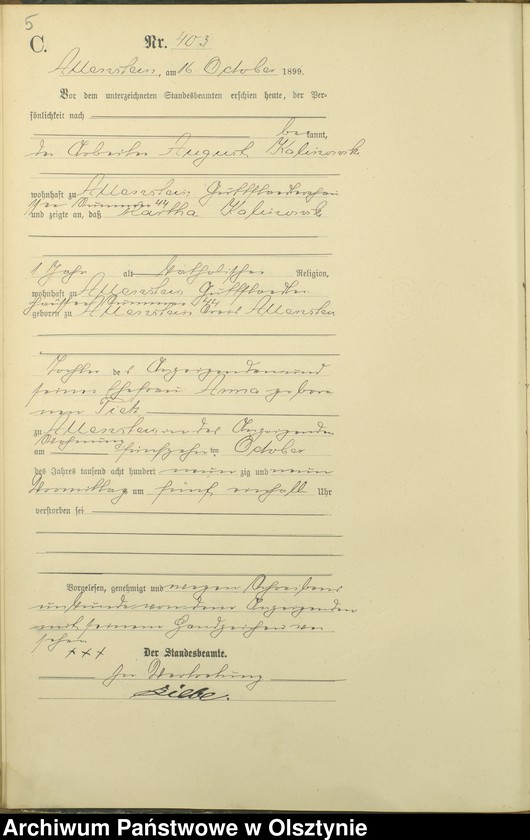 5
C.
Nr. 403
Allenstein, am 16 October 1899.
Vor dem unterzeichneten Standesbeamten erschien heute, der Per-
sönlichkeit nach
be kannt,
der Arbeiter August Kalinowski
wohnhaft zu Allenstein
Nummer 44
und zeigte an, daß Martha Kalinowski
1 Jahr alt katholischer Religion,
wohnhaft zu Allenstein
Nummer 44
geboren zu Allenstein Kreis Allenstein
Tochter des Anzeigenden und
seiner Ehefrau Anna gebore
nen Tietz
zu Allenstein in des Anzeigenden
Wohnung
am fünfzehn ten October
des Jahres tausend acht hundert neun zig und neun
Vormittag um fünf einhalb Uhr
verstorben sei
Vorgelesen, genehmigt und wegen Schreibens
unkunde von dem Anzeigenden
mit seinem Handzeichen ver
sehen
+++
Der Standesbeamte.
In Vertretung
Archiwum Państwowe w Olsztynie